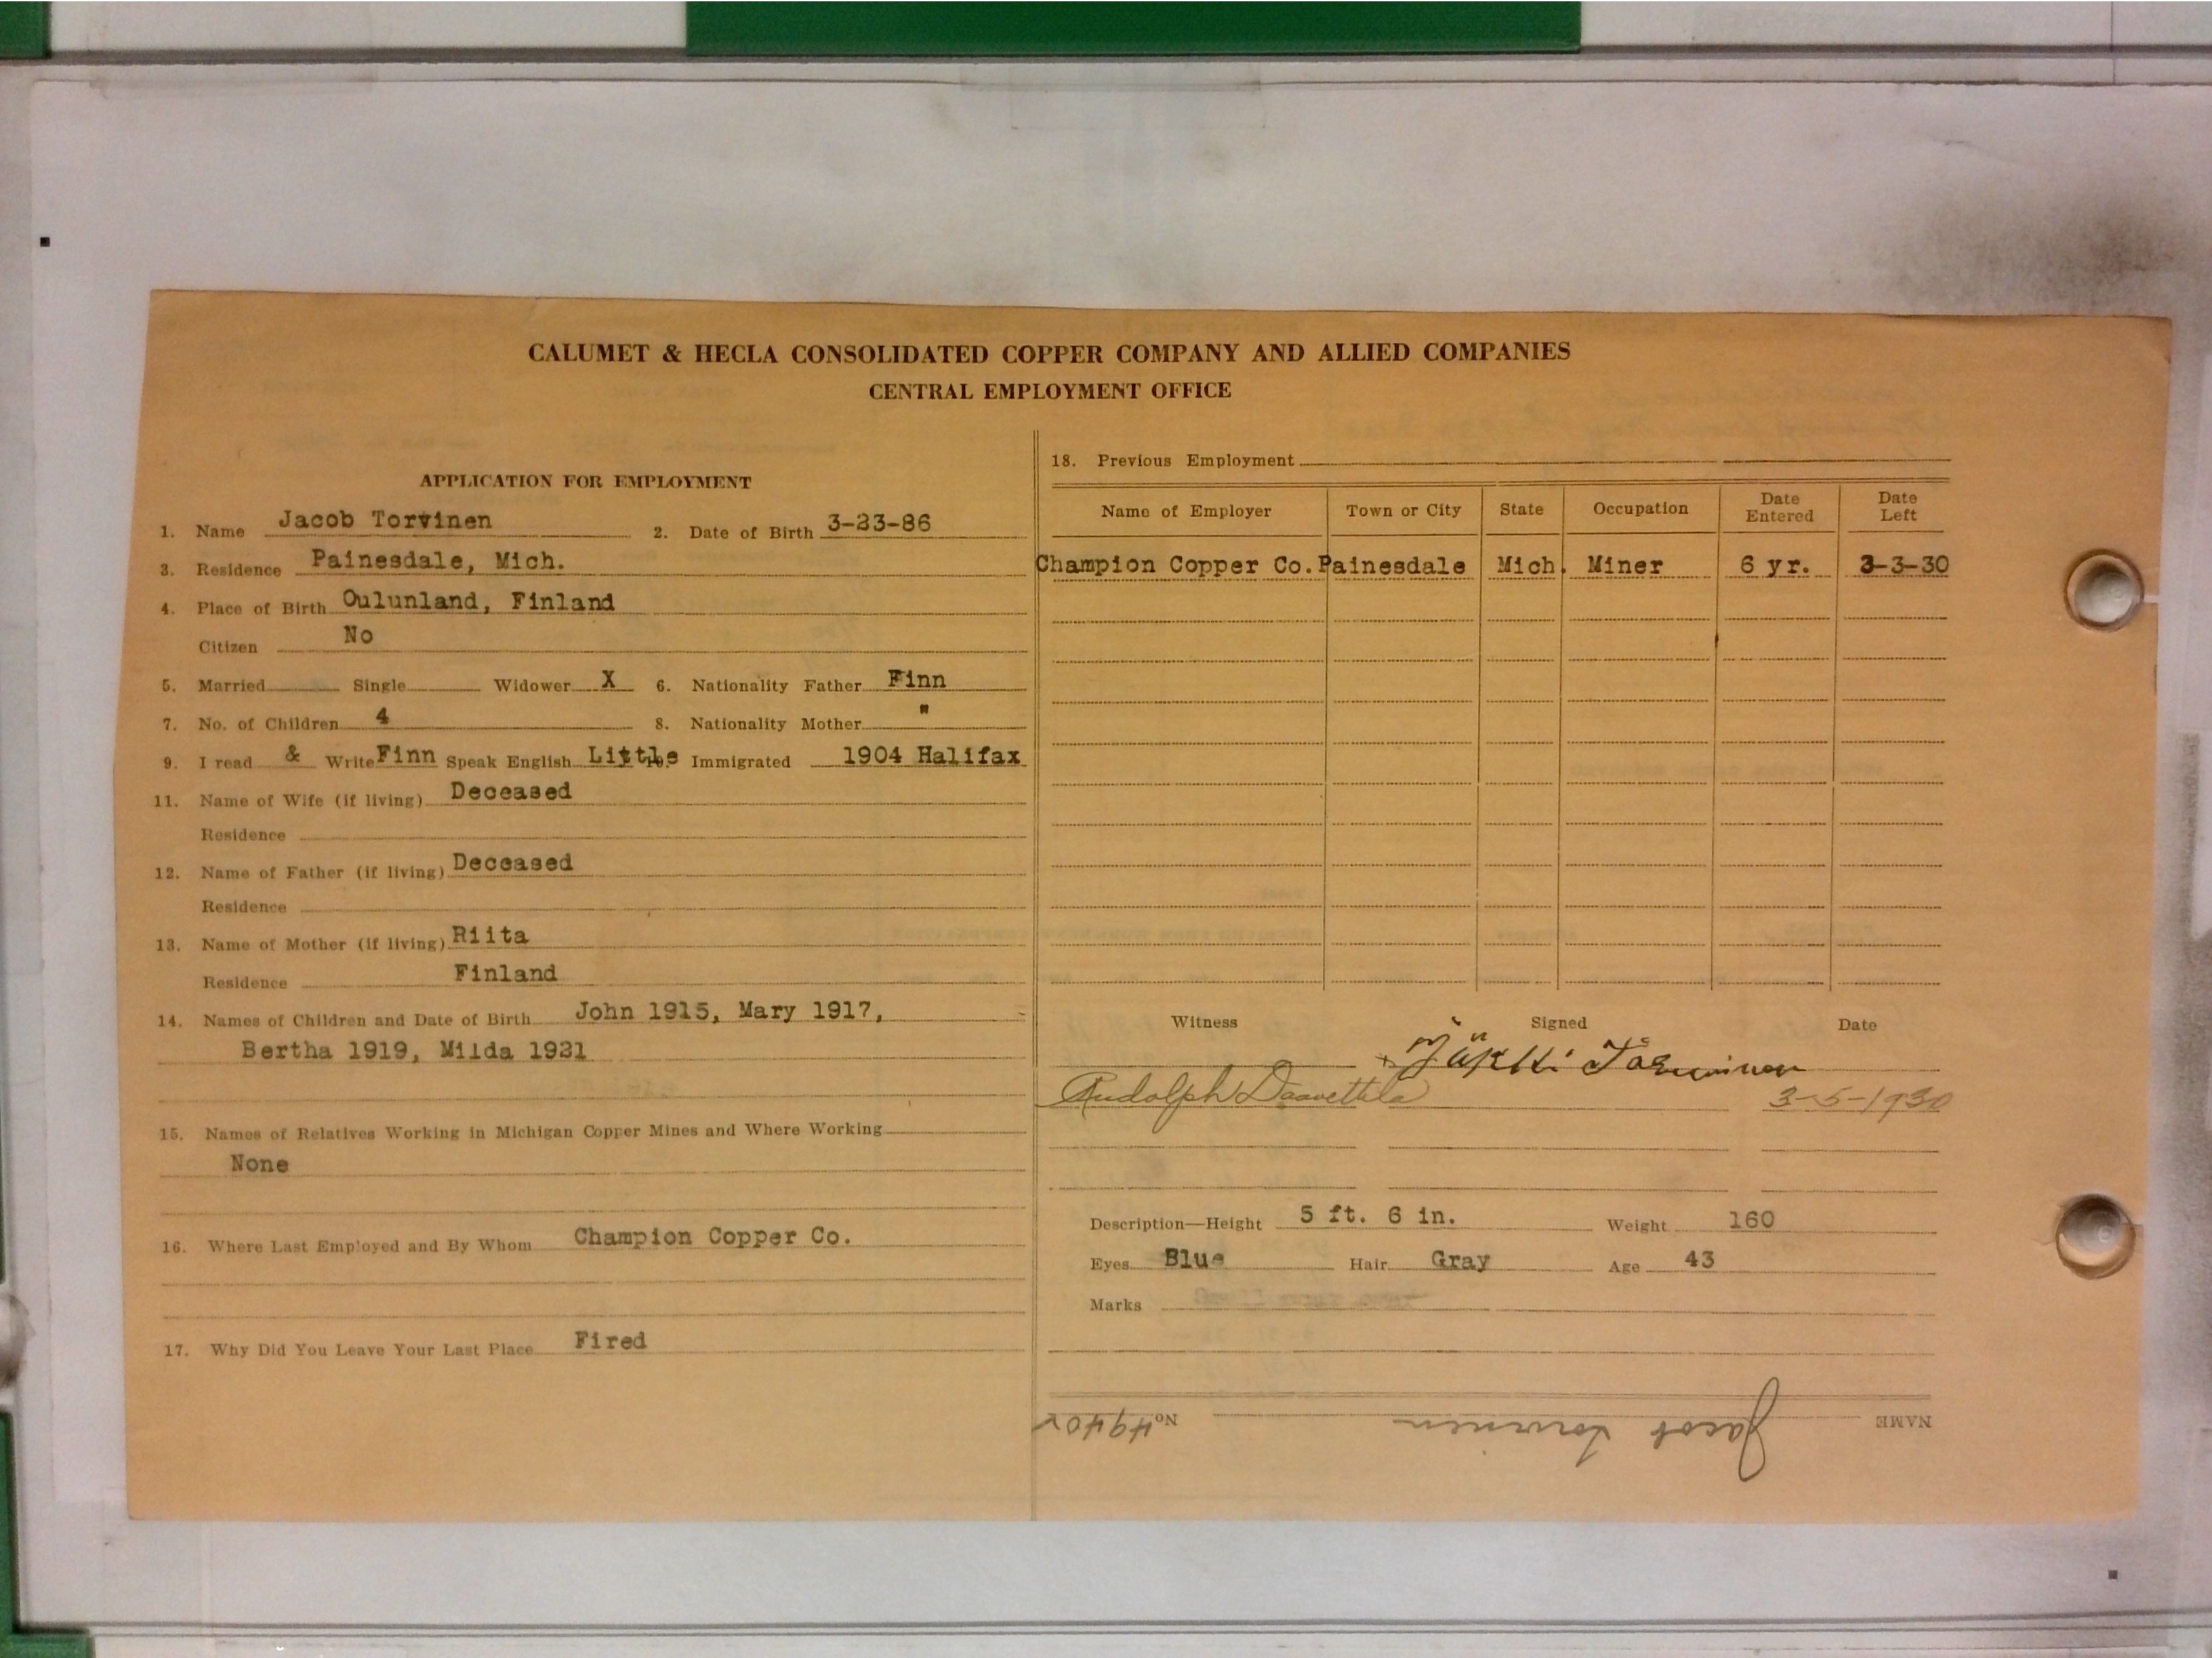 CALUMET & HECLA CONSOLIDATED COPPER COMPANY AND ALLIED COMPANIES
CENTRAL EMPLOYMENT OFFICE
APPLICATION FOR EMPLOYMENT
1. Name Jacob Torvinen 2. Date of Birth 3-23-86
3. Residence Painesdale, Mich.
4. Place of Birth Oulunland, Finland
Citizen No
5. Married Single Widower X 6. Nationality Father Finn
7. No. of Children 4 8. Nationality Mother "
9. I read & Write Finn Speak English Little 10. Immigrated 1904 Halifax
11. Name of Wife (if living) Deceased
Residence
12. Name of Father (if living) Deceased
Residence
13. Name of Mother (if living) Riita
Residence Finland
14. Names of Children and Date of Birth John 1915, Mary 1917,
Bertha 1919, Milda 1921
15. Names of Relatives Working in Michigan Copper Mines and Where Working
None
16. Where Last Employed and By Whom Champion Copper Co.
17. Why Did You Leave Your Last Place Fired
18. Previous Employment
Name of Employer Town or City State Occupation Date Entered Date Left
Champion Copper Co. Painesdale Mich. Miner 6 yr. 3-3-30
Witness Signed Date
Rudolph 3-5-1930
Description—Height 5 ft. 6 in. Weight 160
Eyes Blue Hair Gray Age 43
Marks
NAME Jacob Torvinen No.